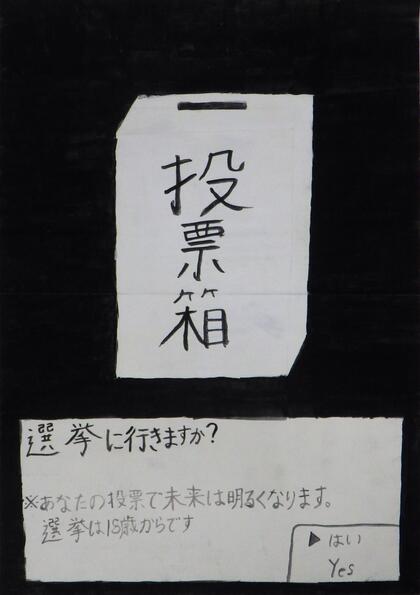 投票箱
選挙に行きますか？
※あなたの投票で未来は明るくなります。
選挙は18歳からです
▶はい
Yes